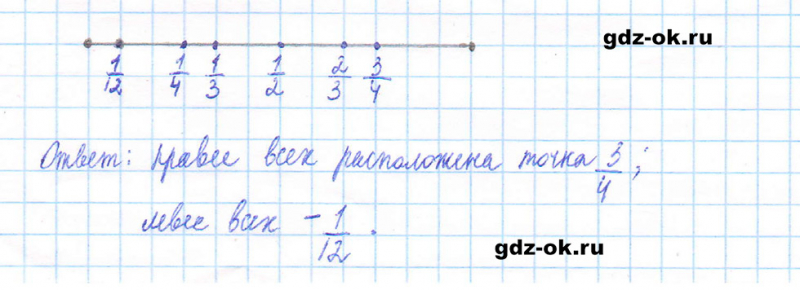 gdz-ok.ru
1/12 1/4 1/3 1/2 2/3 3/4
Ответ: правее всех расположена точка 3/4;
левее всех – 1/12.
gdz-ok.ru